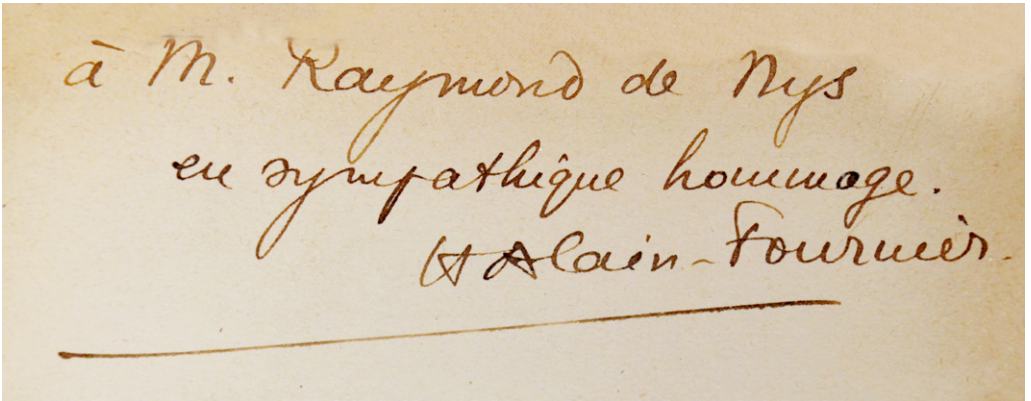 à M. Raymond de Nys
en sympathique hommage.
H Alain-Fournier.